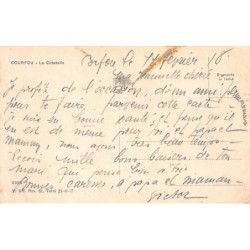 COURFOU - La Citadelle
Corfou le 17 février 18
Ma Jeannette chérie
Je profite de l'occasion, d'un ami
pour te faire parvenir cette carte
je suis en bonne santé et pense qu'il
en est de même pour toi et papa et
maman, nous avons très beau temps
Reçois mille bons baisers de ton
mari qui pense bien à toi
Bonnes caresses, à papa et maman
Victor